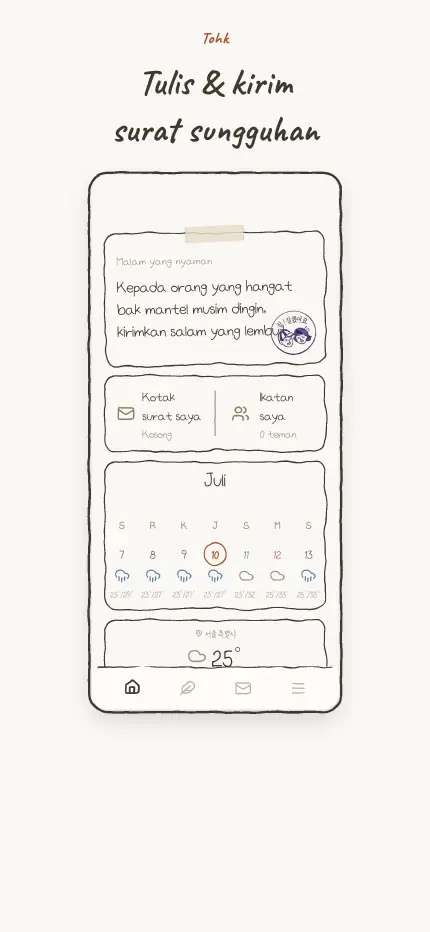 Tohk
Tulis & kirim
surat sungguhan
Malam yang nyaman
Kepada orang yang hangat
bak mantel musim dingin,
kirimkan salam yang
Kotak
surat saya
Kosong
Ikatan
saya
0 teman
Juli
S R K J S M S
7 8 9 10 11 12 13
25°/33° 25°/33°
서울특별시
25°